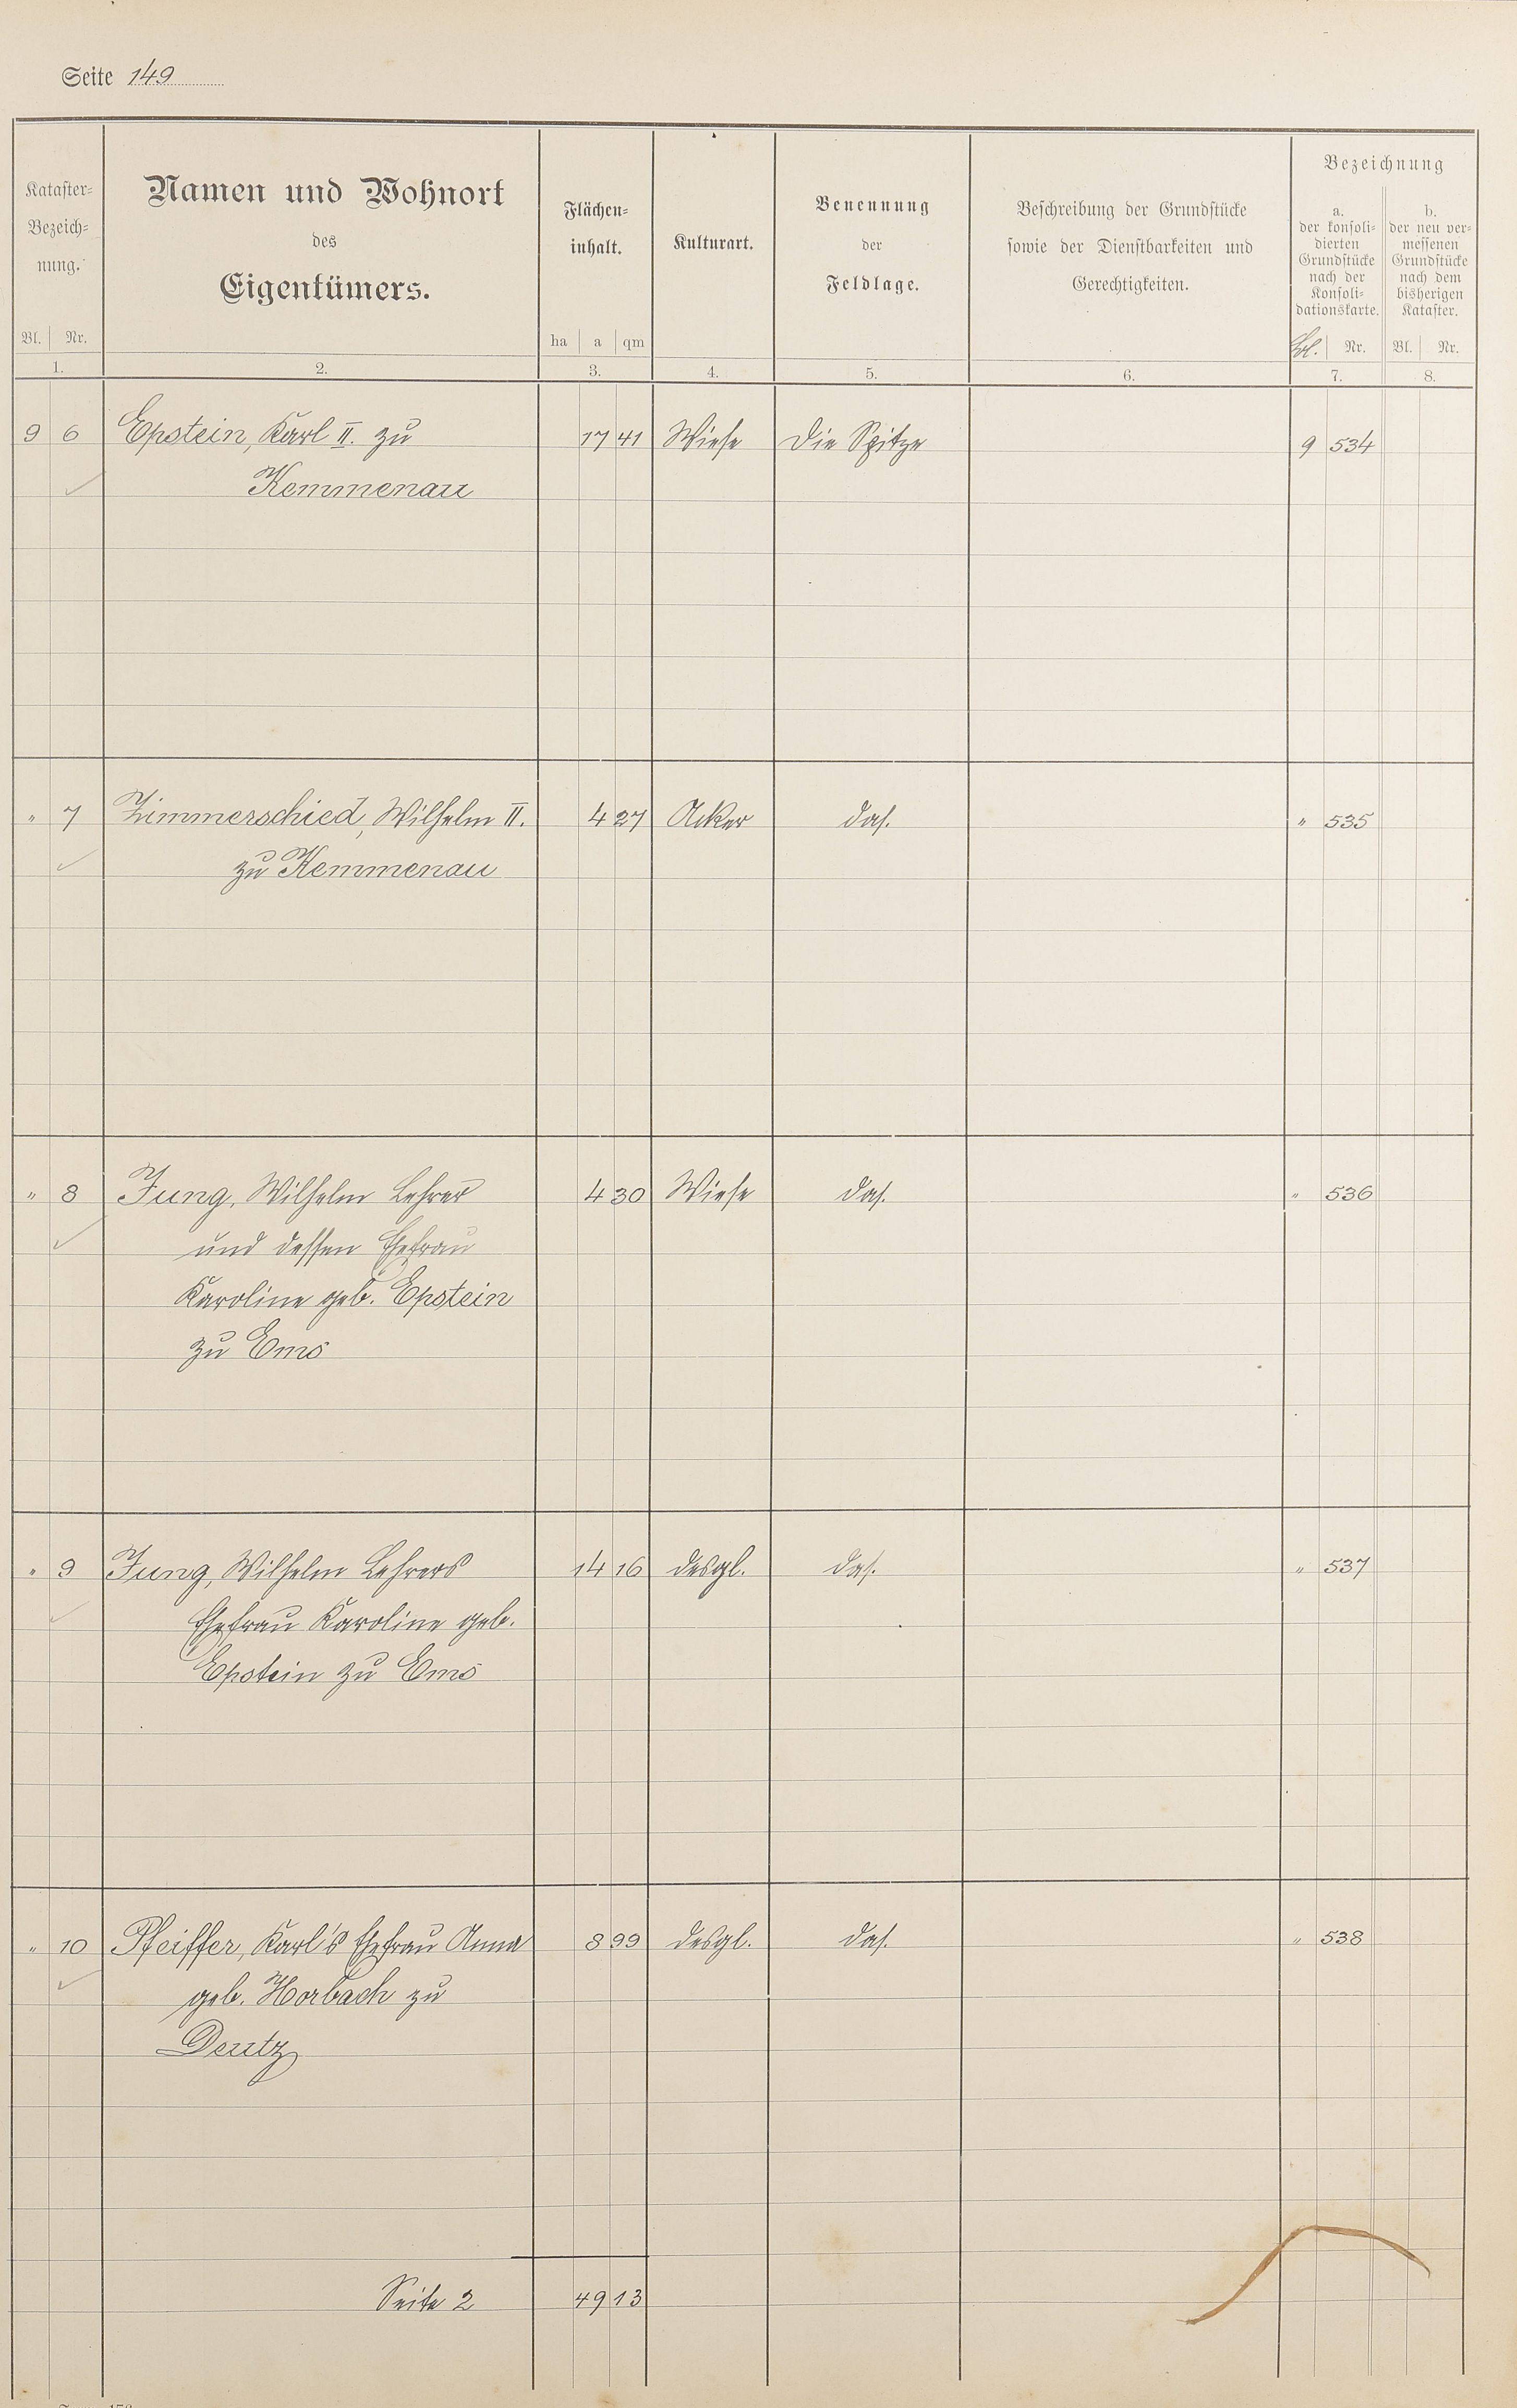 Seite 149
Kataster-
Bezeich-
nung.
Bl. Nr.
1.
Namen und Wohnort
des
Eigentümers.
2.
Flächen-
inhalt.
ha a qm
3.
Kulturart.
4.
Benennung
der
Feldlage.
5.
Beschreibung der Grundstücke
sowie der Dienstbarkeiten und
Gerechtigkeiten.
6.
Bezeichnung
a.
der konsoli-
dierten
Grundstücke
nach der
Konsoli-
dationskarte.
Nr.
7.
b.
der neu ver-
messenen
Grundstücke
nach dem
bisherigen
Kataster.
Bl. Nr.
8.
9 6 Epstein, Karl II. zu 17 41 Wiese Die Spitze 9 534
Kemmenau
" 7 Zimmerschied, Wilhelm II. 4 27 Acker das. " 535
zu Kemmenau
" 8 Jung, Wilhelm Lehrer 4 30 Wiese das. " 536
und dessen Ehefrau
Karoline geb. Epstein
zu Ems
" 9 Jung, Wilhelm Lehrers 14 16 desgl. das. " 537
Ehefrau Karoline geb.
Epstein zu Ems
" 10 Pfeiffer, Karl's Ehefrau Anna 8 99 desgl. das. " 538
geb. Horbach zu
Deutz
Seite 2 49 13